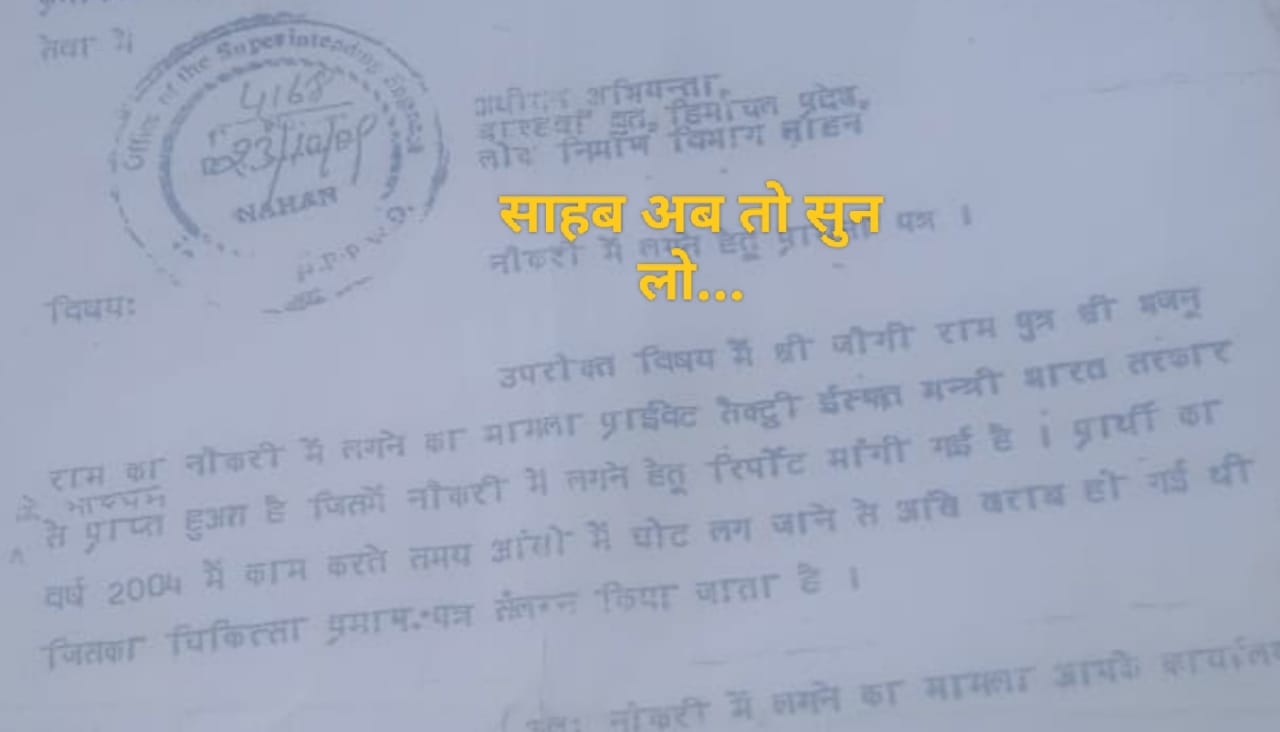 सेवा में
Office of the Superintending Engineer
4168
23/10/09
NAHAN
H.P.P.W.D.
अधीक्षण अभियन्ता,
बारहवां वृत, हिमाचल प्रदेश,
लोक निर्माण विभाग नाहन
साहब अब तो सुन
लो...
नौकरी में लगने हेतू प्रार्थना पत्र ।
विषय:
उपरोक्त विषय में श्री जोगी राम पुत्र श्री भजनू
राम का नौकरी में लगने का मामला प्राईवेट सैक्ट्री ईस्पात मन्त्री भारत सरकार
के माध्यम
से प्राप्त हुआ है जिसमें नौकरी में लगने हेतू रिपोर्ट मांगी गई है । प्रार्थी का
वर्ष 2004 में काम करते समय आंखो में चोट लग जाने से खराब हो गई थी
जिसका चिकित्सा प्रमाण-पत्र संलग्न किया जाता है ।
अत: नौकरी में लगने का मामला आपके कार्यालय